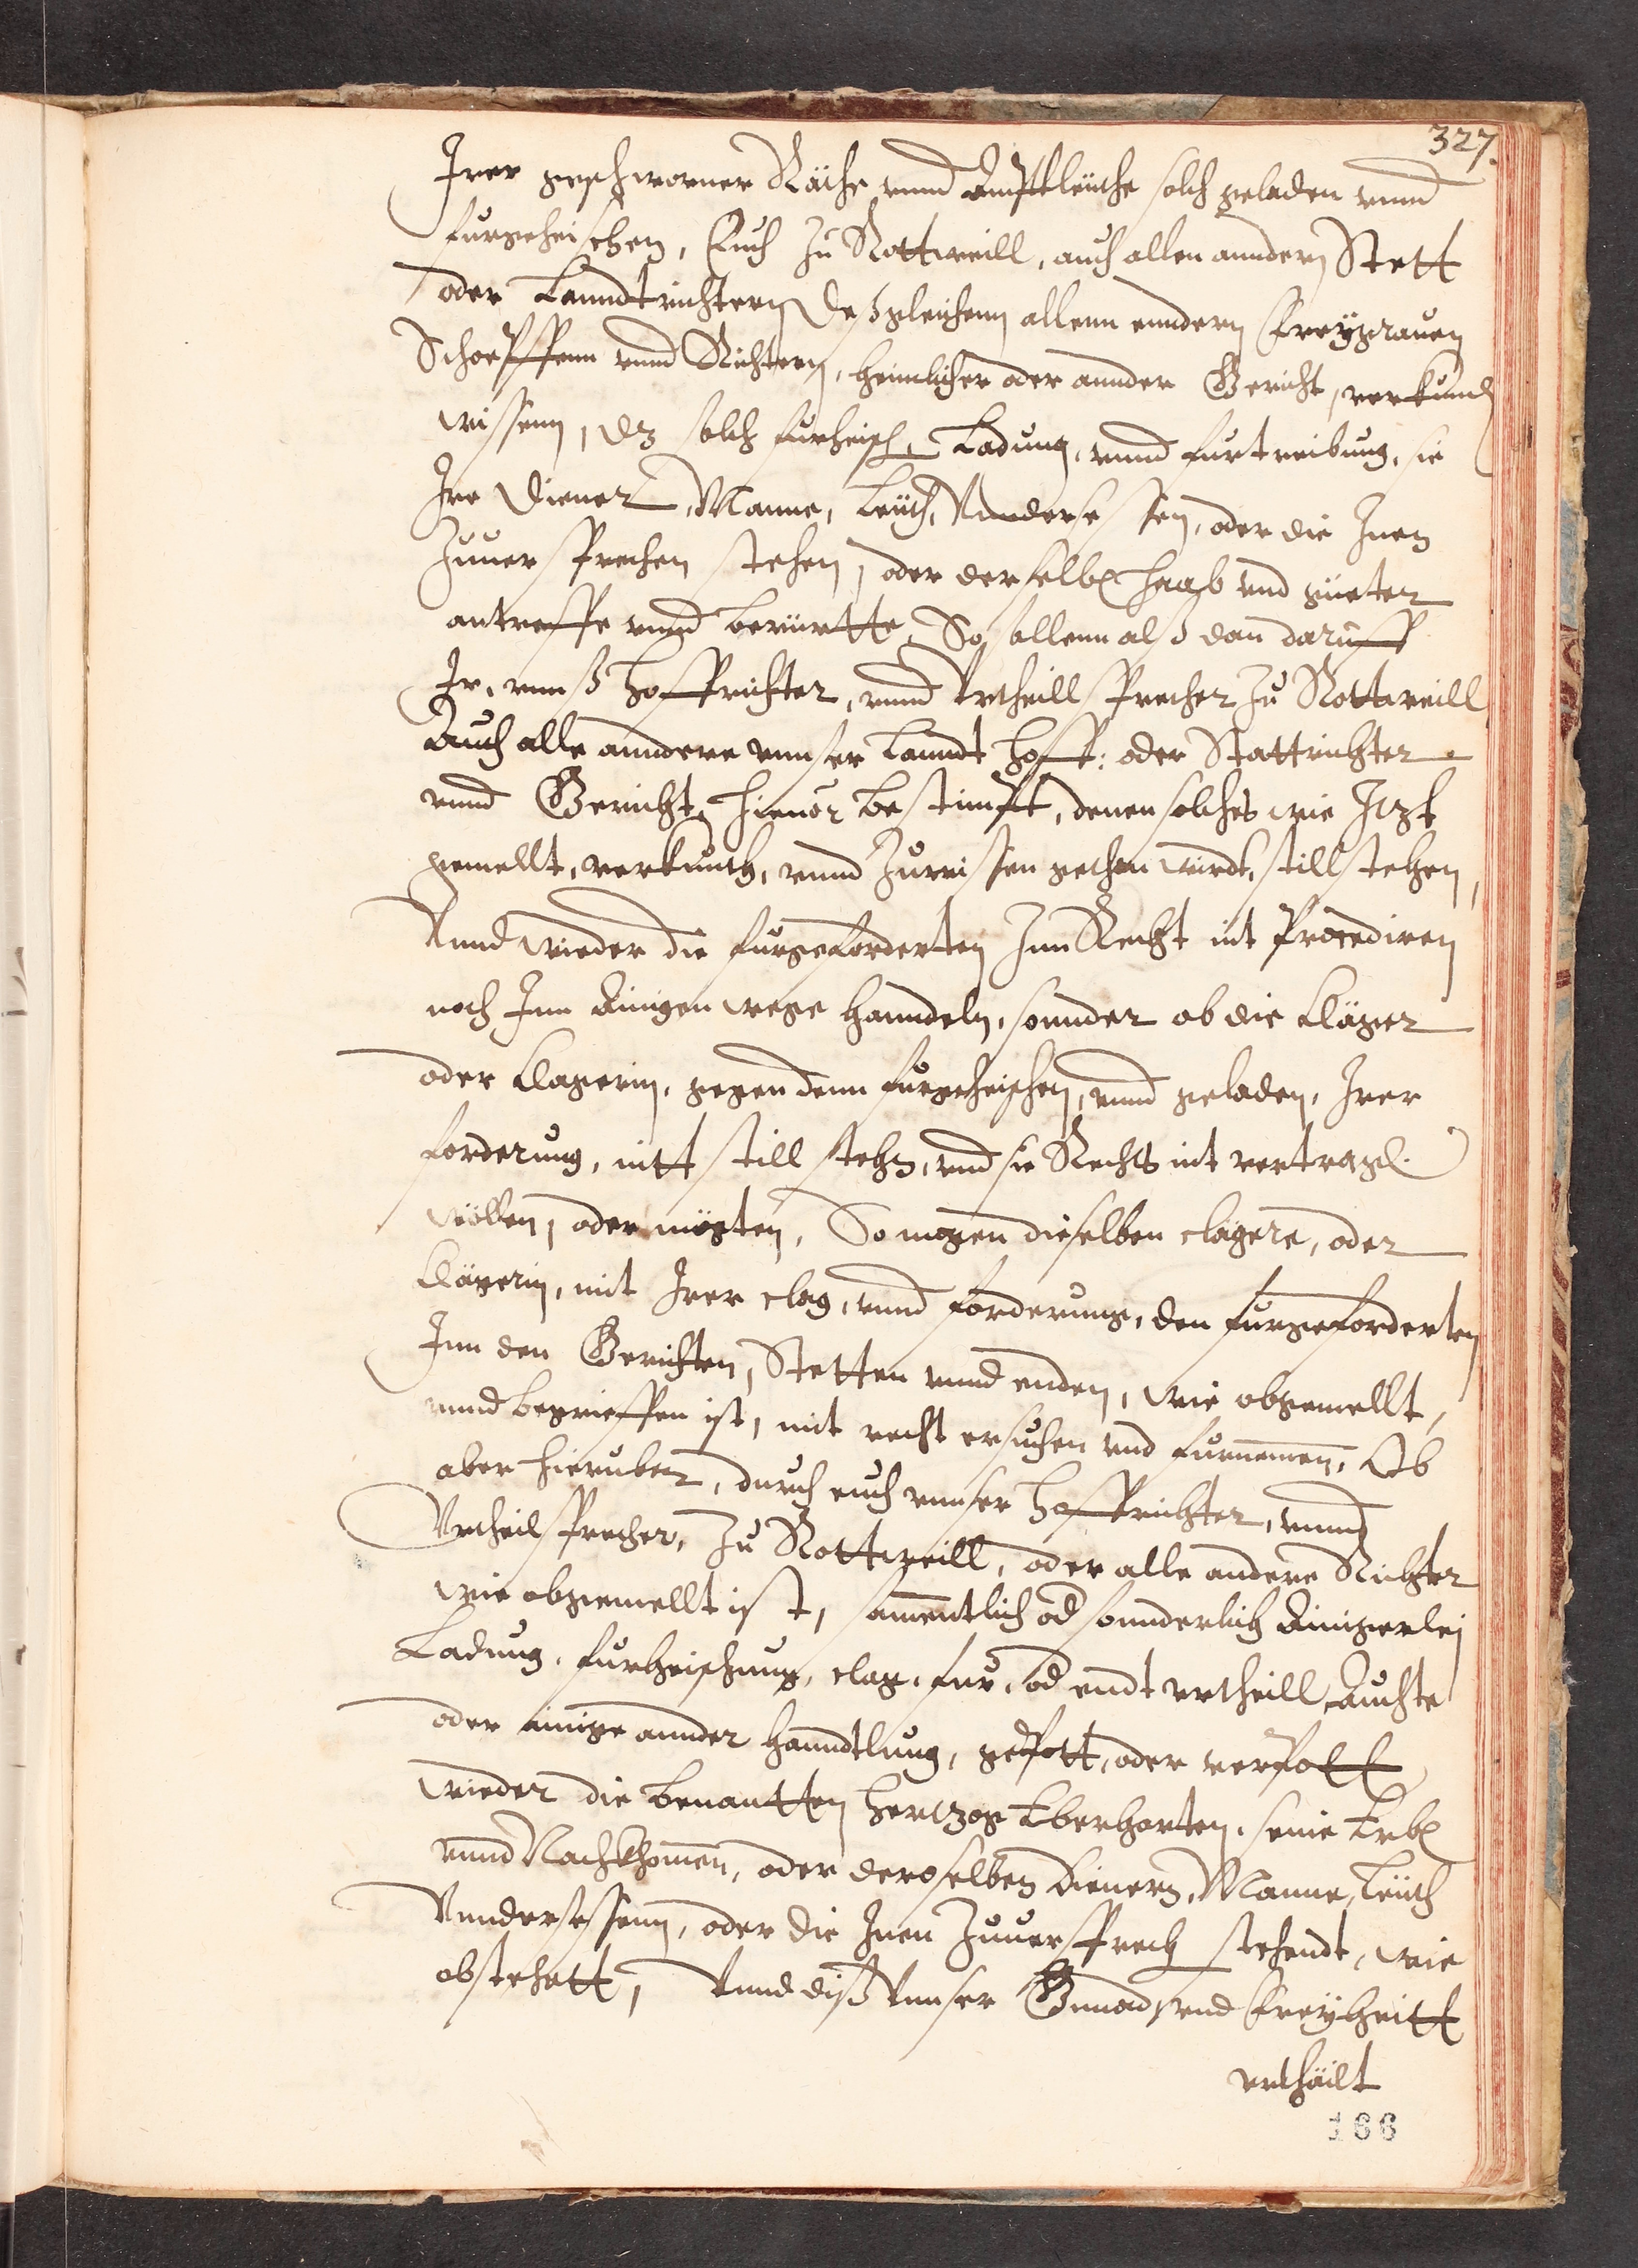 327.
Irer geschworner Räthe vnnd Amptleüthe solch geladen vnnd
furgeheischen, Euch zu Rottweill, auch allen anndern Stett
oder Lanndtrichtern deßgleichenn allenn enndern Freygrauen
Schoepffenn vnnd Richtern, heimlicher oder annder Gericht, verkund
wissenn, dz solch furheisch, Ladung, vnnd furtreibung, sie
Ire Diener, Manne, Leuth, Vnndersessen, oder die Inen
zuuersprechen stehen, oder derselben Haab vnd güeter
antreffe vnnd berüertte, So sollenn alß dan daruff
Ir, vnnß Hoffrichter, vnnd Vrtheillsprecher zu Rottweill
Auch alle anndere vnnser Lanndt Hoff: oder Stattrichter
vnnd Gericht, hieuor bestimpt, denen solches wie Jtzt
gemellt, verkunth, vnnd zuwissen gethan wirdt, stillstehen,
Vnnd wieder die furgeforderten Inn Recht nit Procediren
noch Inn Einigen wege hanndeln, sonnder ob die Cläger
oder Clagerin, gegen denn furgeheischen, vnnd geladen, Irer
forderung, nitt still stehn, vnd sie Rechts nit vertragen
wöllen, oder mögten, So mogen dieselben clägere, oder
Clägerin, mit Irer clag, vnnd forderung, den furgeforderten
Inn den Gerichten, Stetten vnnd enden, wie obgemellt,
vnnd begrieffen ist, mit recht ersuchen vnd furnemen, Ob
aber hieruber, durch euch vnnser Hoffrichter, vnnd
Vrtheilsprecher, zu Rottweill, oder alle andere Richter
wie obgemellt ist, samentlich od sonnderlich Einigerlej
Ladung, furheischung, clag, fur, od endt vrtheill, Auchte
oder einige annder hanndtlung, geschott, oder
wieder die benantten Hertzog Eberharten, seine Erben
vnnd Nachkhomen, oder deroselben Dienern, Manne, Leuth
Vnndersessenn, oder die Inen zuuersprech stehendt, wie
obstehett, Vnnd diß Vnnser Gnnad vnd Freyheitt
vrthäilt
166